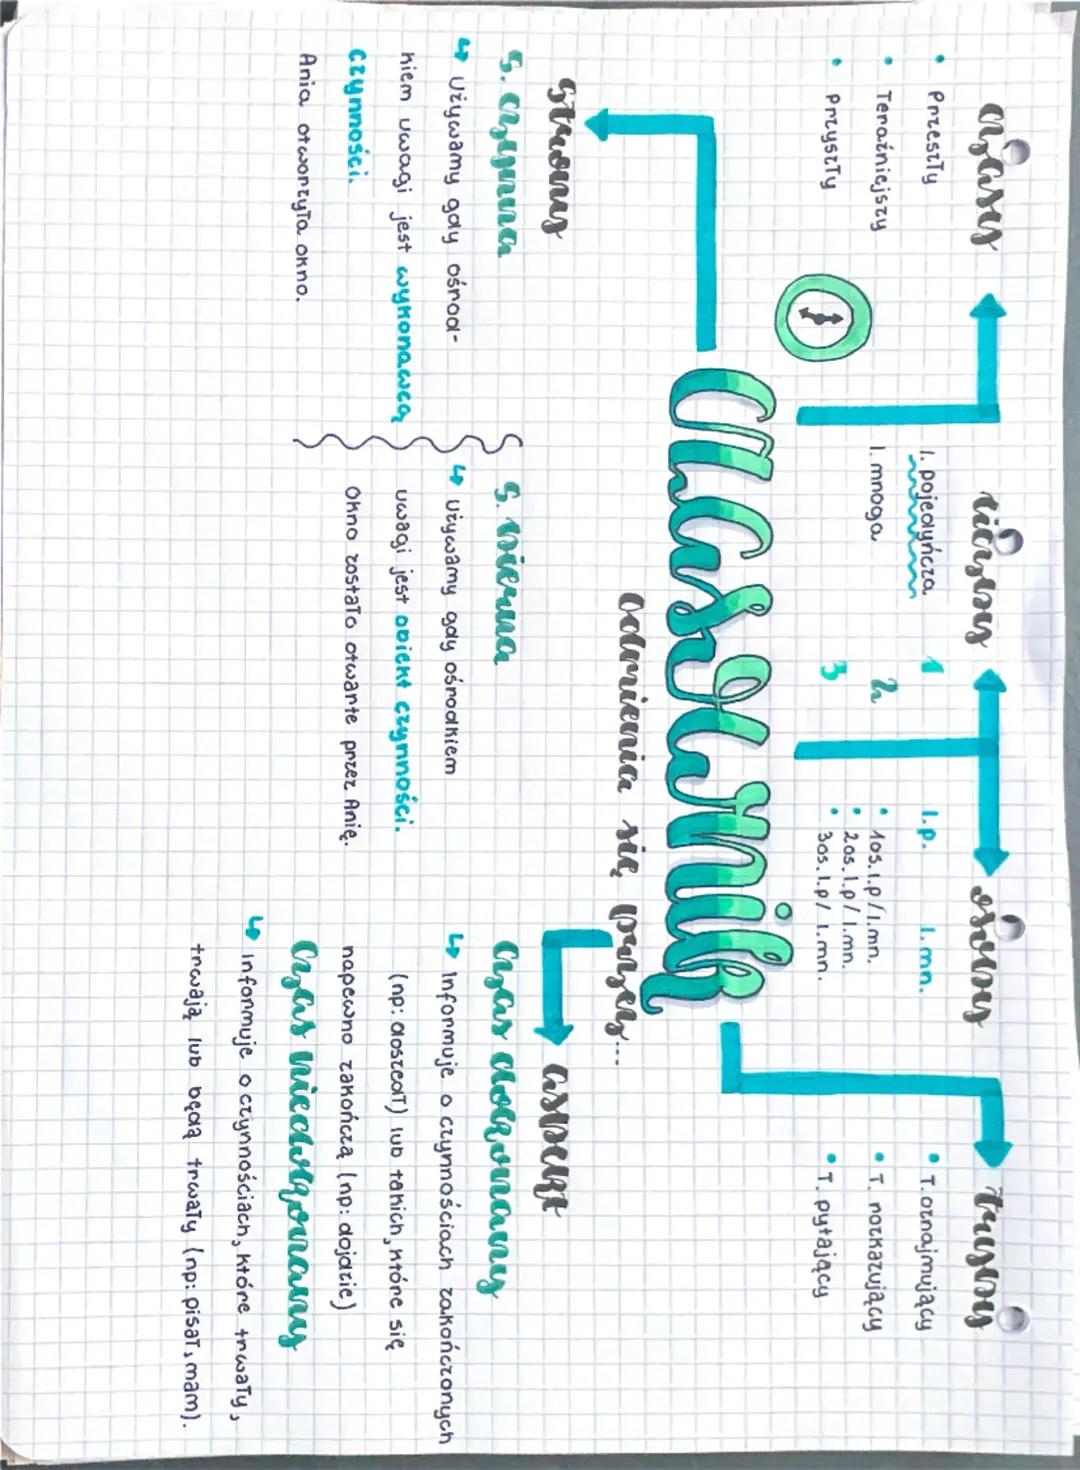 czasy
• Przeszły
• Teraźniejszy
• Przyszły
liczby
l. pojedyńcza
l. mnoga
osoby
1
2
3
l.p. l.mn.
• 1os. l.p / l.mn.
• 2os. l.p / l.mn.
• 3os. l.p / l.mn.
tryby
• T. oznajmujący
• T. rozkazujący
• T. pytający
Czasownik
Odmienia się przez...
strony
S. czynna
↳ Używamy gdy ośrod-
kiem uwagi jest wykonawcą
czynności.
Ania otworzyła okno.
S. bierna
↳ Używamy gdy ośrodkiem
uwagi jest obiekt czynności.
Okno zostało otwarte przez Anię.
aspekt
Czas dokonany
↳ Informuje o czynnościach zakończonych
(np: doszedł) lub takich, które się
napewno zakończą (np: dojdzie)
Czas niedokonany
↳ Informuje o czynnościach, które trwały,
trwają lub będą trwały (np: pisał, mam).